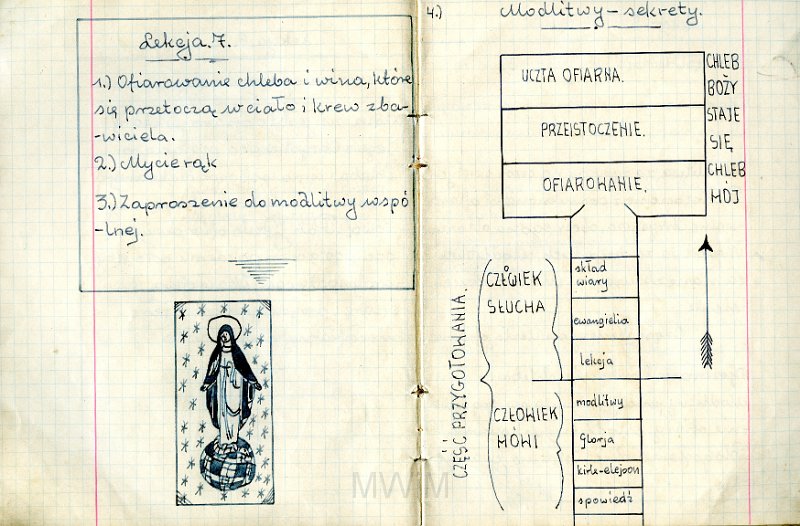 Lekcja.7.
1.) Ofiarowanie chleba i wina, które
się przetoczą w ciało i krew zba-
-wiciela.
2.) Mycie rąk
3.) Zaproszenie do modlitwy wspó
-lnej.
4.) Modlitwy – sekrety.
UCZTA OFIARNA.
PRZEISTOCZENIE.
OFIAROWANIE.
CHLEB
BOŻY
STAJE
SIĘ
CHLEB
MÓJ
CZĘŚĆ PRZYGOTOWANIA.
CZŁOWIEK
SŁUCHA
CZŁOWIEK
MÓWI
skład
wiary
ewangielia
lekcja
modlitwy
Glorja
kirle-elejson
spowiedź
MWM